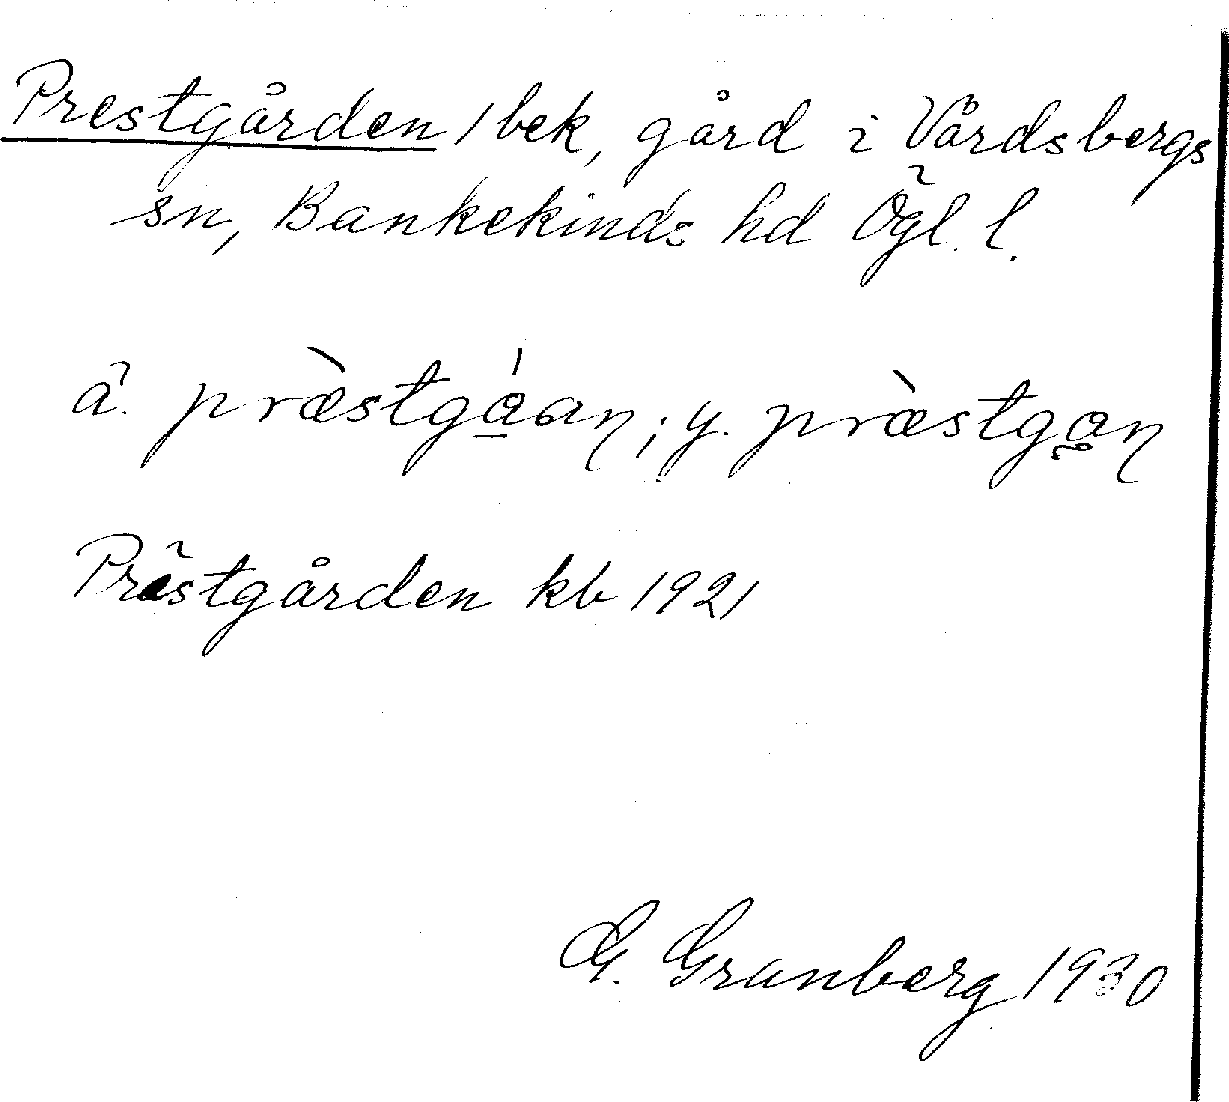 Prestgården /bek, gård i Vårdsbergs
sn, Bankekinds hd Ögl. l.
ä. præ̀stgá̱an; y. præ̀stga̰n
Prästgården kb 1921
G. Granberg 1930